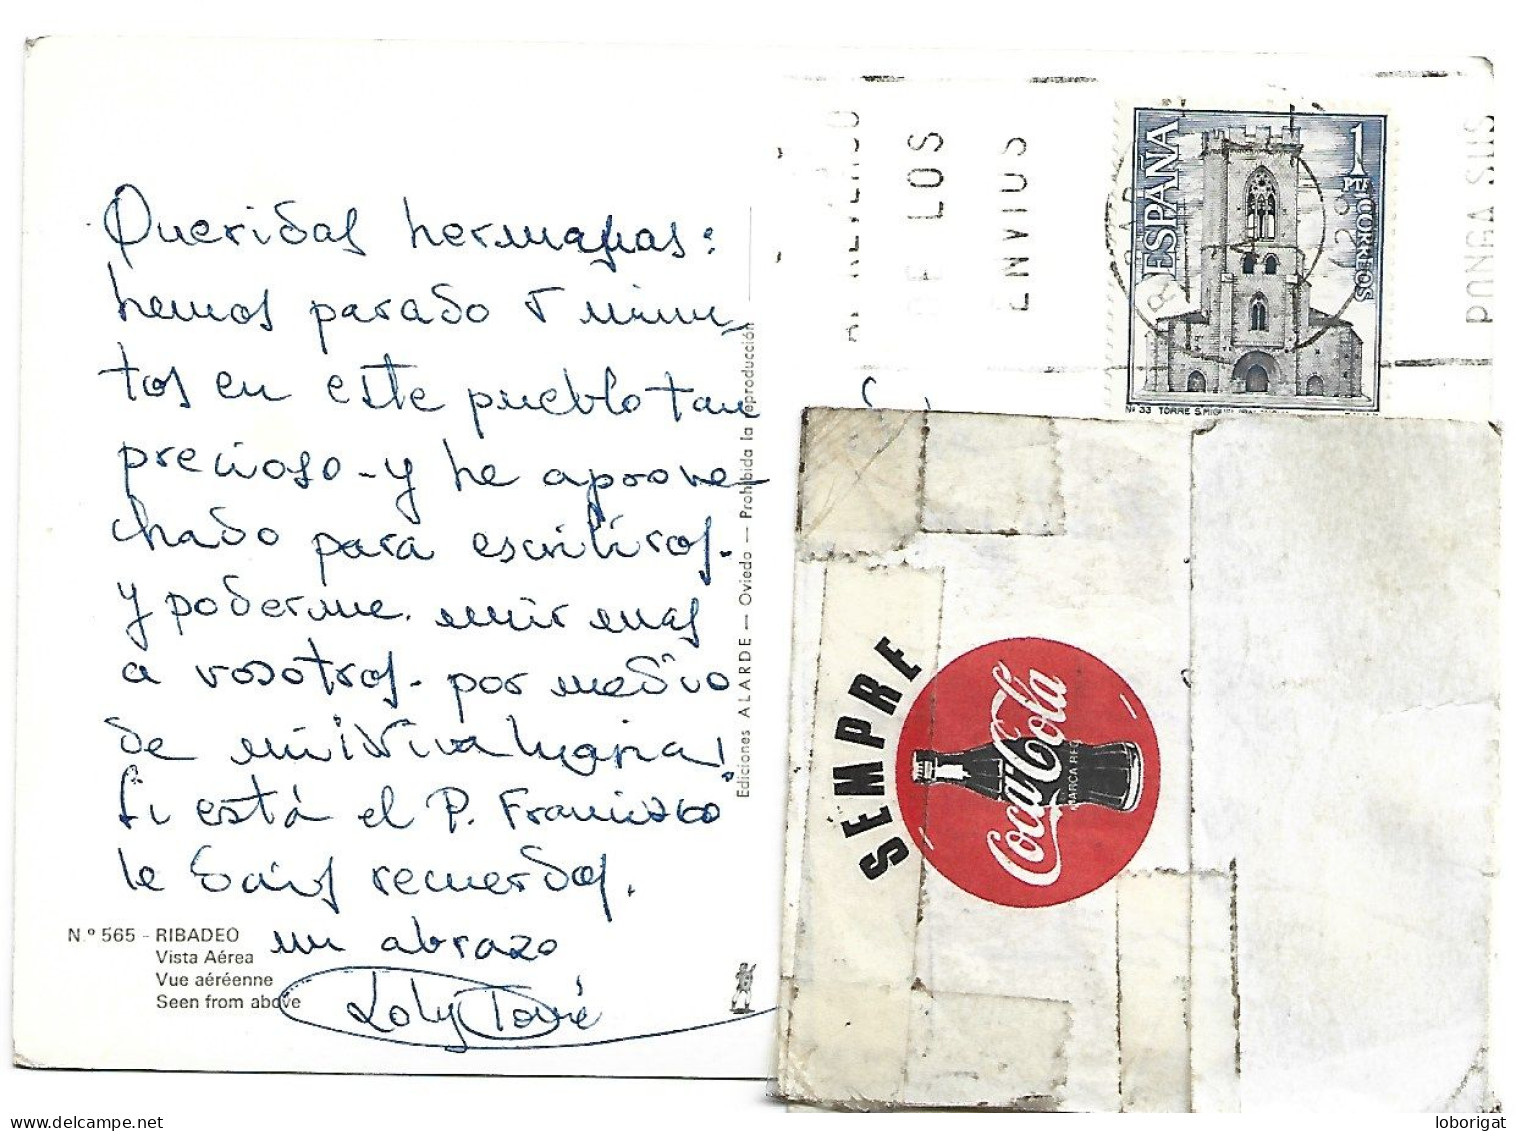 Queridas hermanas:
hemos parado 5 minu-
tos en este pueblo tan
precioso - y he aprove-
chado para escribiros.
y poderme unir mas
a vosotros. por medio
de mi ¡Viva
Si está el P. Francisco
le dais recuerdos.
un abrazo
Loly
N.º 565 - RIBADEO
Vista Aérea
Vue aéréenne
Seen from above
Ediciones ALARDE — Oviedo — Prohibida la reproducción
AL REVERSO
DE LOS
ENVIOS
ESPAÑA
1
PTA
CORREOS
Nº 33 TORRE S. MIGUEL
PONGA SUS
SEMPRE
Coca-Cola
MARCA REG
loborigat